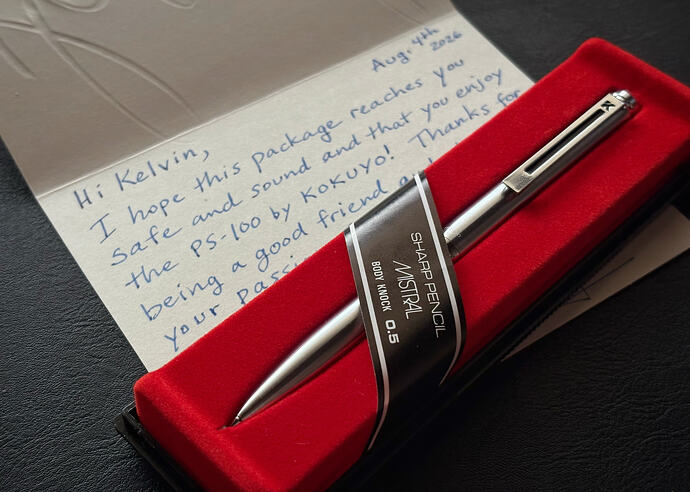 Aug. 4th
2026
Hi Kelvin,
I hope this package reaches you
safe and sound and that you enjoy
the PS-100 by KOKUYO! Thanks for
being a good friend and
your
SHARP PENCIL
MISTRAL
BODY KNOCK 0.5
K